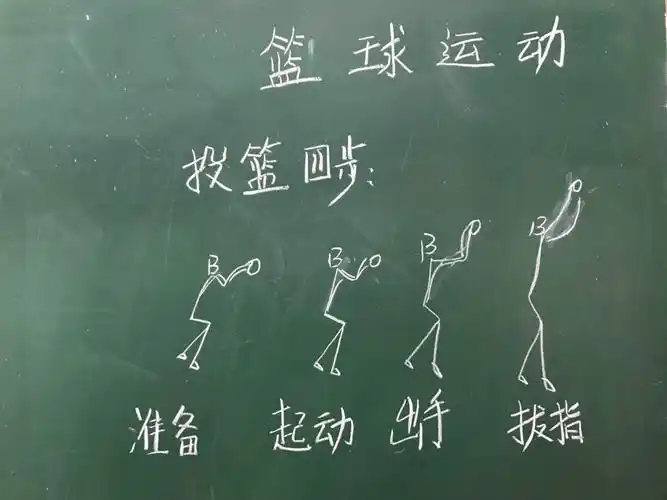 篮球运动
投篮四步:
准备 起动 出手 拔指